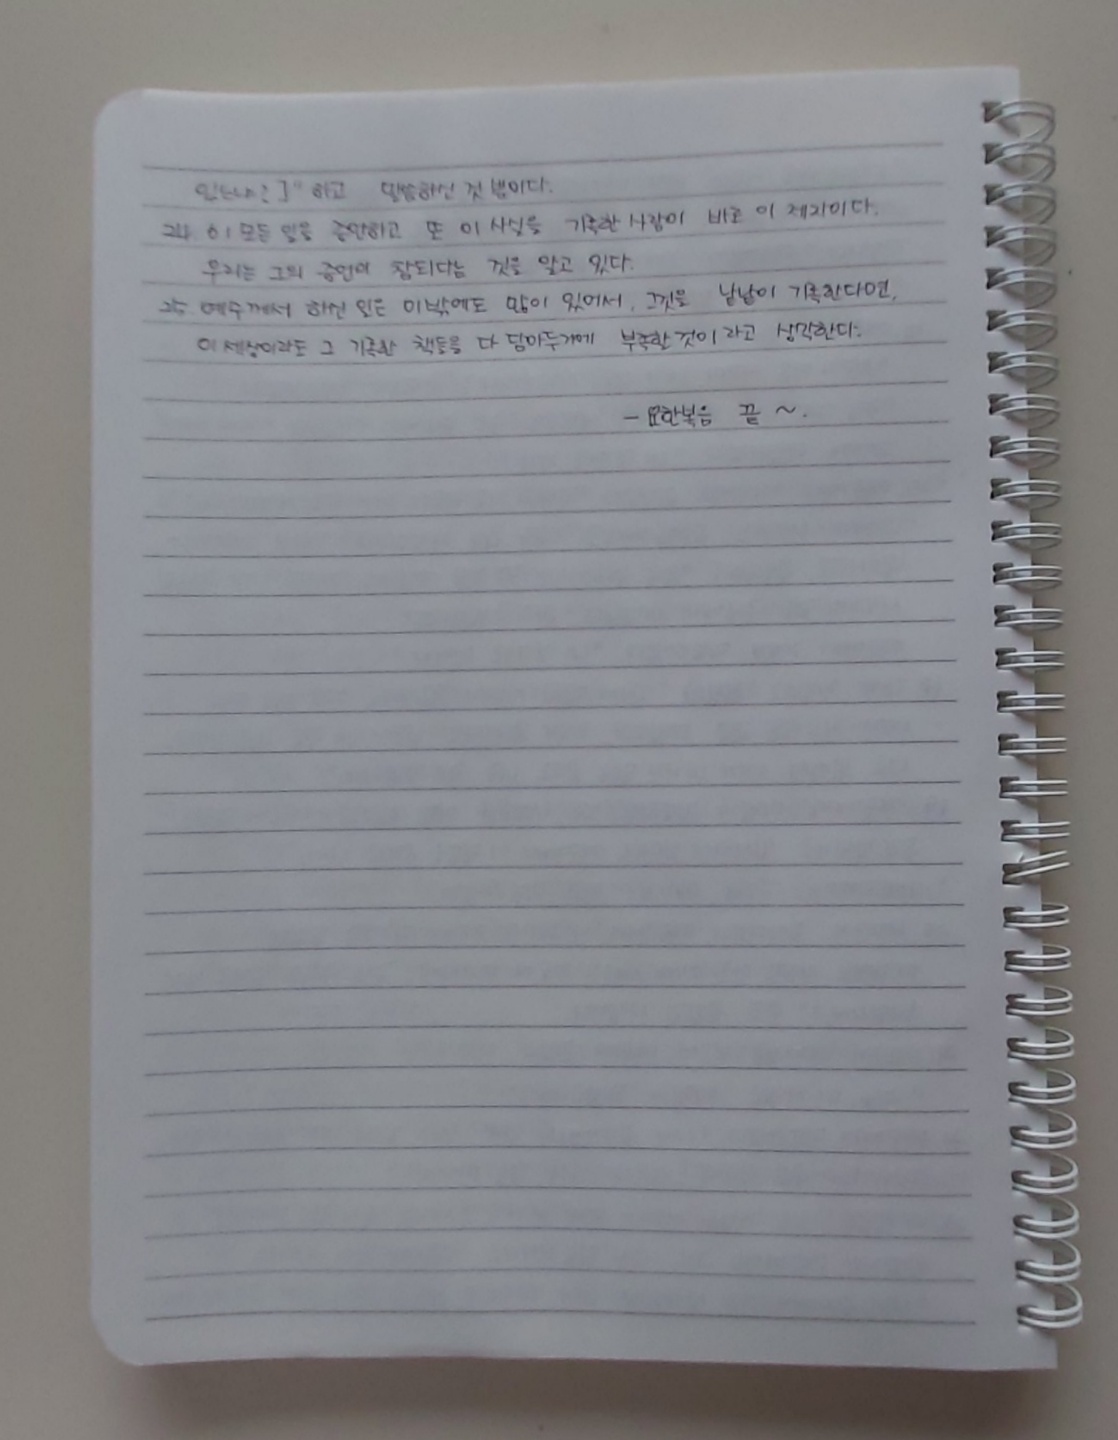 있느냐?]" 하고 말씀하신 것 뿐이다.
24 이 모든 일을 증언하고 또 이 사실을 기록한 사람이 바로 이 제자이다.
우리는 그의 증언이 참되다는 것을 알고 있다.
25 예수께서 하신 일은 이밖에도 많이 있어서, 그것을 낱낱이 기록한다면,
이 세상이라도 그 기록한 책들을 다 담아두기에 부족할 것이라고 생각한다.
- 요한복음 끝 ~.